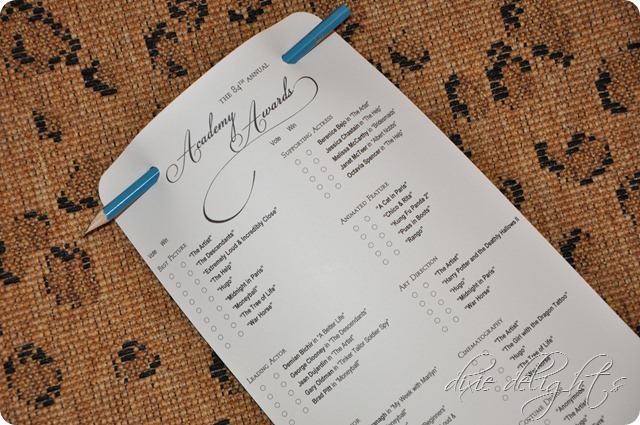 THE 84TH ANNUAL
Academy Awards
Vote Win
BEST PICTURE
"The Artist"
"The Descendants"
"Extremely Loud & Incredibly Close"
"The Help"
"Hugo"
"Midnight in Paris"
"Moneyball"
"The Tree of Life"
"War Horse"
LEADING ACTOR
Demian Bichir in "A Better Life"
George Clooney in "The Descendants"
Jean Dujardin in "The Artist"
Gary Oldman in "Tinker Tailor Soldier Spy"
Brad Pitt in "Moneyball"
in "My Week with Marilyn"
Beginners"
Vote Win
SUPPORTING ACTRESS
Berenice Bejo in "The Artist"
Jessica Chastain in "The Help"
Melissa McCarthy in "Bridesmaids"
Janet McTeer in "Albert Nobbs"
Octavia Spencer in "The Help"
ANIMATED FEATURE
"A Cat in Paris"
"Chico & Rita"
"Kung Fu Panda 2"
"Puss in Boots"
"Rango"
ART DIRECTION
"The Artist"
"Harry Potter and the Deathly Hallows II
"Hugo"
"Midnight in Paris"
"War Horse"
CINEMATOGRAPHY
"The Artist"
"The Girl with the Dragon Tattoo"
"Hugo"
"The Tree of Life"
COSTUME
"Anonymous"
dixie delights